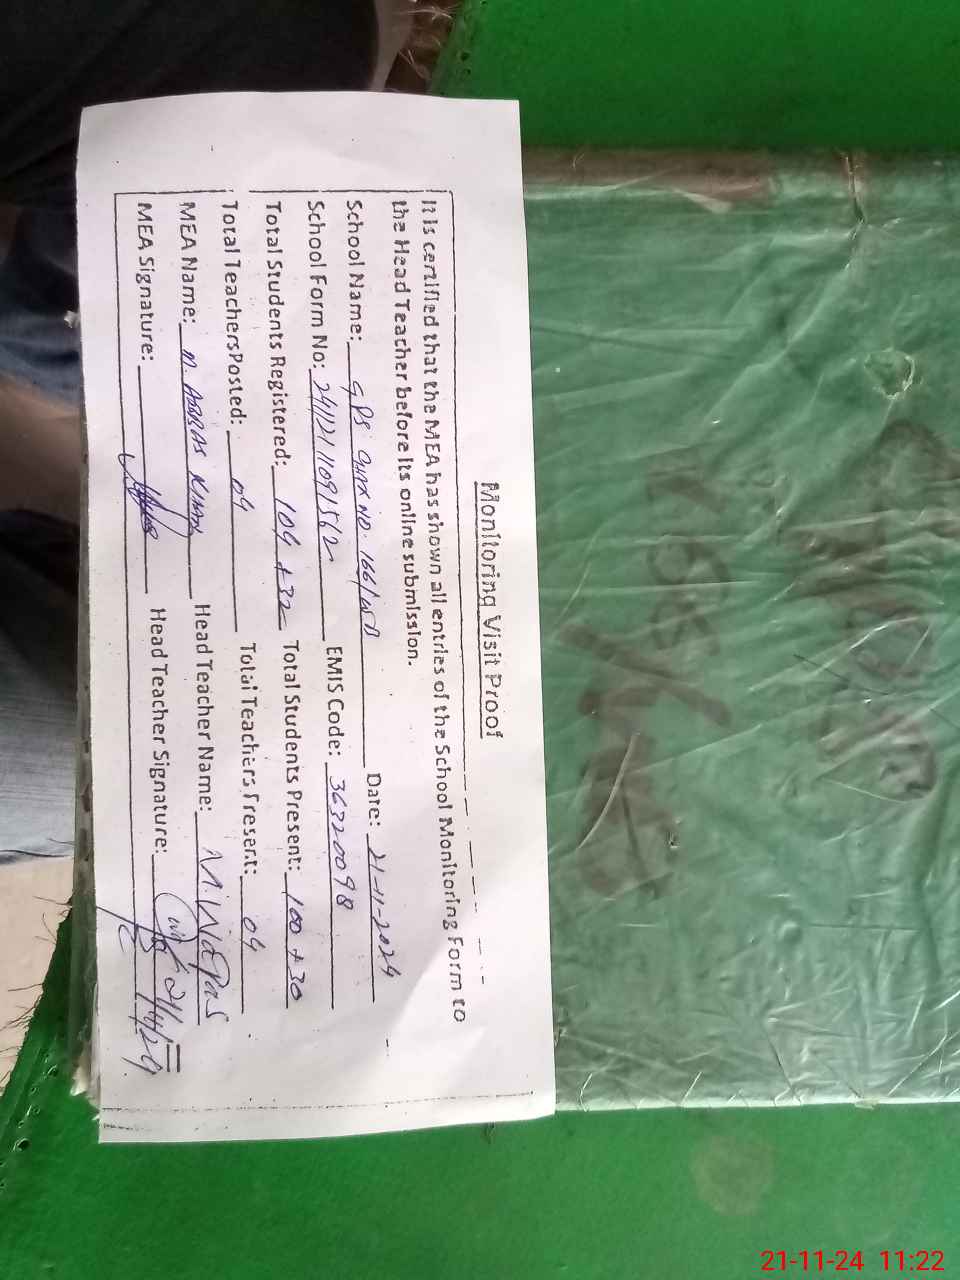 Monitoring Visit Proof
It is certified that the MEA has shown all entries of the School Monitoring Form to
the Head Teacher before its online submission.
School Name: GPS CHAK NO. 166/WB Date: 21-11-2024
School Form No: 2411211091562 EMIS Code: 36320098
Total Students Registered: 109 +32 Total Students Present: 100 +30
Total Teachers Posted: 04 Total Teachers Present: 04
MEA Name: M. ABBAS KHAN Head Teacher Name: M. Waqas
MEA Signature: Head Teacher Signature: 21/11/24
21-11-24 11:22